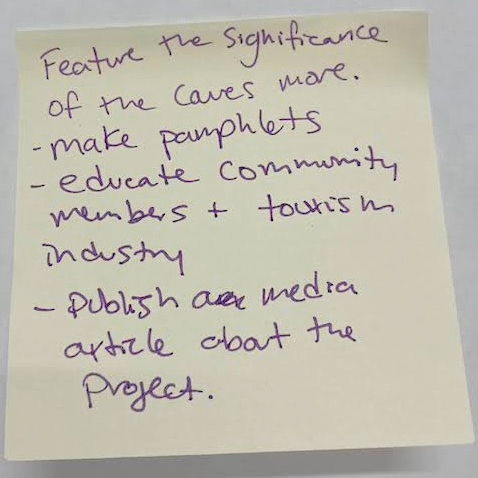 Feature the significance
of the Caves more.
- make pamphlets
- educate community
members + tourism
industry
- publish a media
article about the
project.